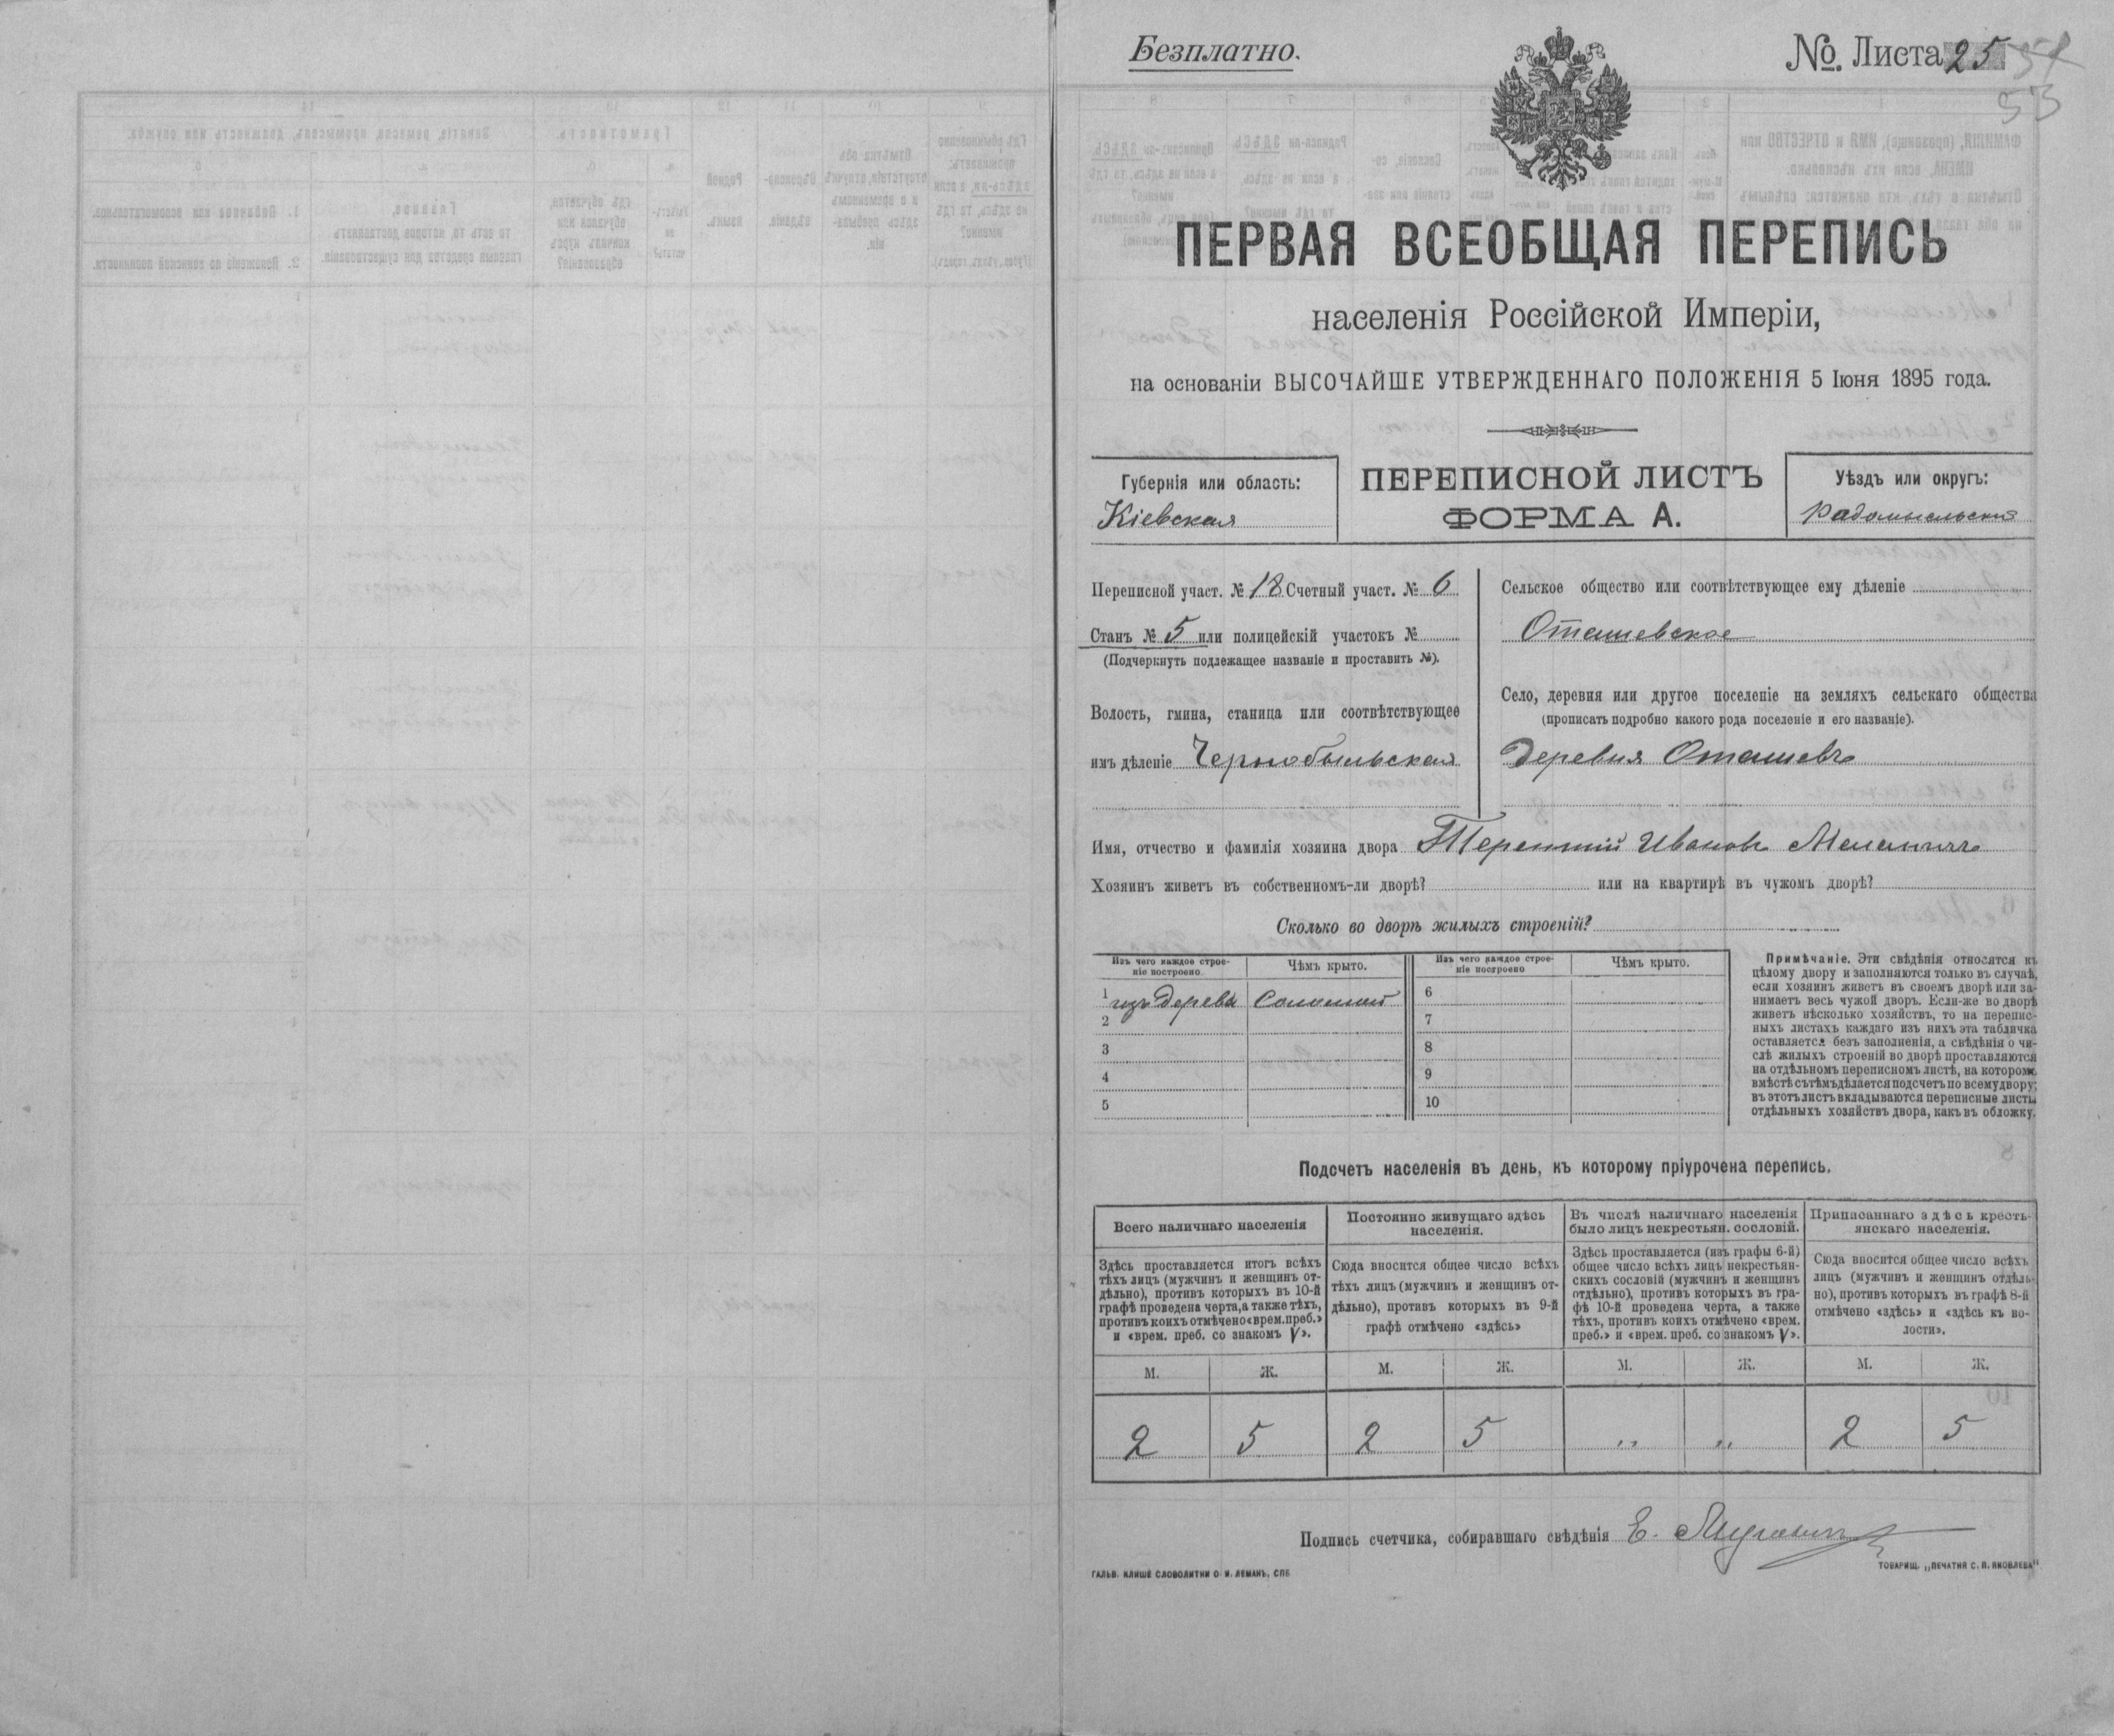 Безплатно.
№. Листа 25
53
ПЕРВАЯ ВСЕОБЩАЯ ПЕРЕПИСЬ
населенія Россійской Имперіи,
на основаніи ВЫСОЧАЙШЕ УТВЕРЖДЕННАГО ПОЛОЖЕНІЯ 5 Іюня 1895 года.
Губернія или область:
Кіевская
ПЕРЕПИСНОЙ ЛИСТЪ
ФОРМА А.
Уѣздъ или округъ:
Радомысльскій
Переписной участ. № 18 Счетный участ. № 6
Станъ № 5 или полицейскій участокъ №
(Подчеркнуть подлежащее названіе и проставить №).
Волость, гмина, станица или соотвѣтствующее
имъ дѣленіе Чернобыльская
Сельское общество или соотвѣтствующее ему дѣленіе
Оташевское
Село, деревня или другое поселеніе на земляхъ сельскаго общества
(прописать подробно какого рода поселеніе и его названіе).
Деревня Оташевъ
Имя, отчество и фамилія хозяина двора Терентій Ивановъ
Хозяинъ живетъ въ собственномъ-ли дворѣ? или на квартирѣ въ чужомъ дворѣ?
Сколько во дворѣ жилыхъ строеній?
Изъ чего каждое строе-
ніе построено.
Чѣмъ крыто.
Изъ чего каждое строе-
ніе построено
Чѣмъ крыто.
1 изъ дерева Соломой 6
2 7
3 8
4 9
5 10
Примѣчаніе. Эти свѣдѣнія относятся къ
цѣлому двору и заполняются только въ случаѣ,
если хозяинъ живетъ въ своемъ дворѣ или за-
нимаетъ весь чужой дворъ. Если-же во дворѣ
живетъ нѣсколько хозяйствъ, то на перепис-
ныхъ листахъ каждаго изъ нихъ эта табличка
оставляется безъ заполненія, а свѣдѣнія о чи-
слѣ жилыхъ строеній во дворѣ проставляются
на отдѣльномъ переписномъ листѣ, на которомъ
вмѣстѣ съ тѣмъ дѣлается подсчетъ по всему двору;
въ этотъ листъ вкладываются переписные листы
отдѣльныхъ хозяйствъ двора, какъ въ обложку.
Подсчетъ населенія въ день, къ которому пріурочена перепись.
Всего наличнаго населенія
Здѣсь проставляется итогъ всѣхъ
тѣхъ лицъ (мужчинъ и женщинъ от-
дѣльно), противъ которыхъ въ 10-й
графѣ проведена черта, а также тѣхъ,
противъ коихъ отмѣчено «врем. преб.»
и «врем. преб. со знакомъ V».
Постоянно живущаго здѣсь
населенія.
Сюда вносится общее число всѣхъ
тѣхъ лицъ (мужчинъ и женщинъ от-
дѣльно), противъ которыхъ въ 9-й
графѣ отмѣчено «здѣсь»
Въ числѣ наличнаго населенія
было лицъ некрестьян. сословій.
Здѣсь проставляется (изъ графы 6-й)
общее число всѣхъ лицъ некрестьян-
скихъ сословій (мужчинъ и женщинъ
отдѣльно), противъ которыхъ въ гра-
фѣ 10-й проведена черта, а также
тѣхъ, противъ коихъ отмѣчено «врем.
преб.» и «врем. преб. со знакомъ V».
Приписаннаго здѣсь кресть-
янскаго населенія.
Сюда вносится общее число всѣхъ
лицъ (мужчинъ и женщинъ отдѣль-
но), противъ которыхъ въ графѣ 8-й
отмѣчено «здѣсь» и «здѣсь къ во-
лости».
М. Ж. М. Ж. М. Ж. М. Ж.
2 5 2 5 „ „ 2 5
Подпись счетчика, собиравшаго свѣдѣнія Е.
ГАЛЬВ. КЛИШЕ СЛОВОЛИТНИ О. И. ЛЕМАНЪ, СПБ
ТОВАРИЩ. „ПЕЧАТНЯ С. П. ЯКОВЛЕВА"